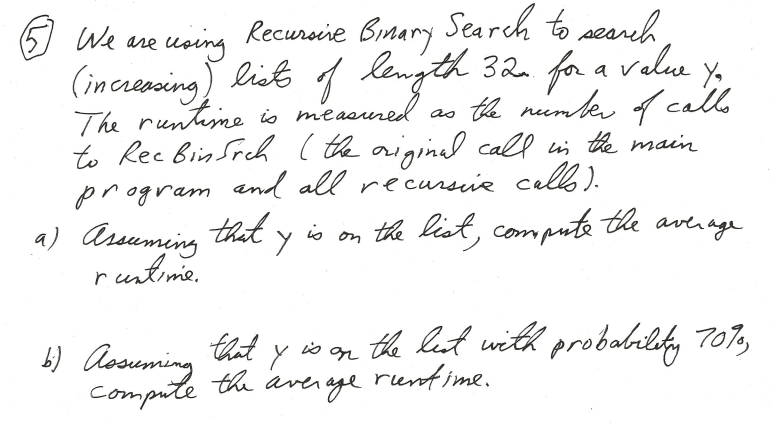 5 We are using Recursive Binary Search to search
(increasing) lists of length 32 for a value y.
The runtime is measured as the number of calls
to RecBinSrch (the original call in the main
program and all recursive calls).
a) Assuming that y is on the list, compute the average
runtime.
b) Assuming that y is on the list with probability 70%,
compute the average runtime.